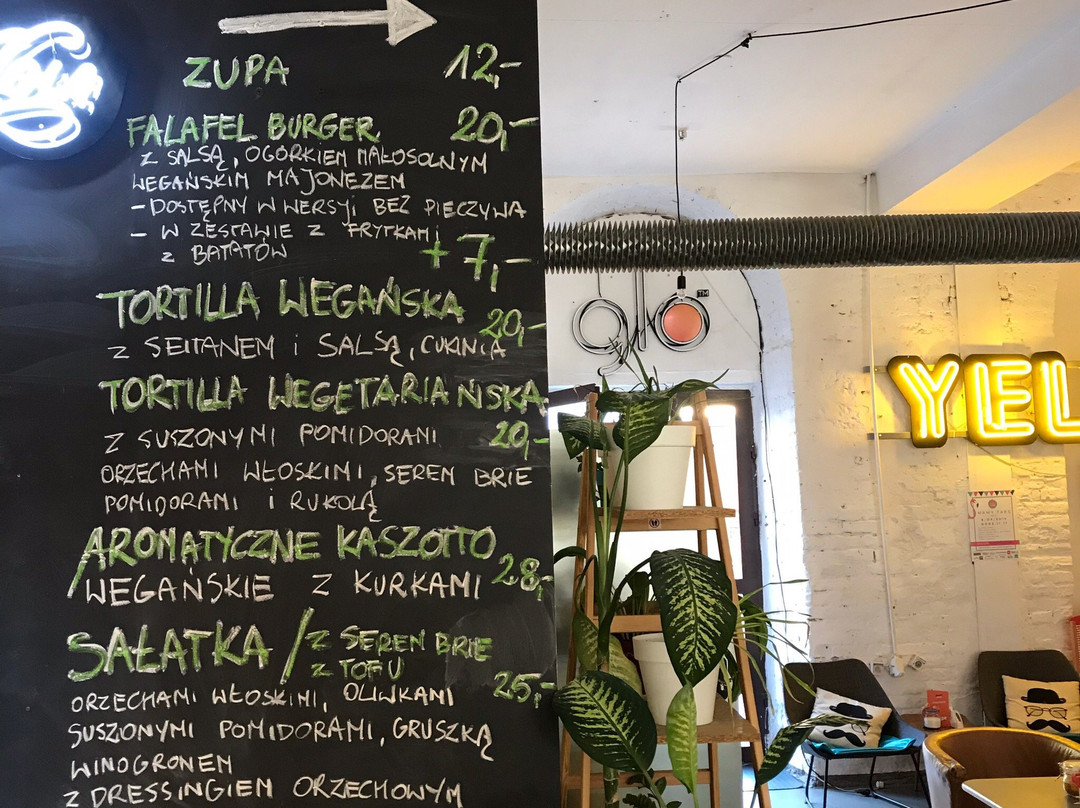 ZUPA 12,-
FALAFEL BURGER 20,-
Z SALSĄ, OGÓRKIEM MAŁOSOLNYM
WEGAŃSKIM MAJONEZEM
- DOSTĘPNY W WERSJI BEZ PIECZYWA
- W ZESTAWIE Z FRYTKAMI
Z BATATÓW + 7,-
TORTILLA WEGAŃSKA 20,-
Z SEITANEM i SALSĄ, CUKINIA
TORTILLA WEGETARIAŃSKA
Z SUSZONYMI POMIDORAMI 20,-
ORZECHAMI WŁOSKIMI, SEREM BRIE
POMIDORAMI I RUKOLĄ
AROMATYCZNE KASZOTTO
WEGAŃSKIE Z KURKAMI 28,-
SAŁATKA / Z SEREM BRIE
Z TOFU 25,-
ORZECHAMI WŁOSKIMI, OLIWKAMI
SUSZONYMI POMIDORAMI, GRUSZKĄ
WINOGRONEM
Z DRESSINGIEM ORZECHOWYM
TM
YEL